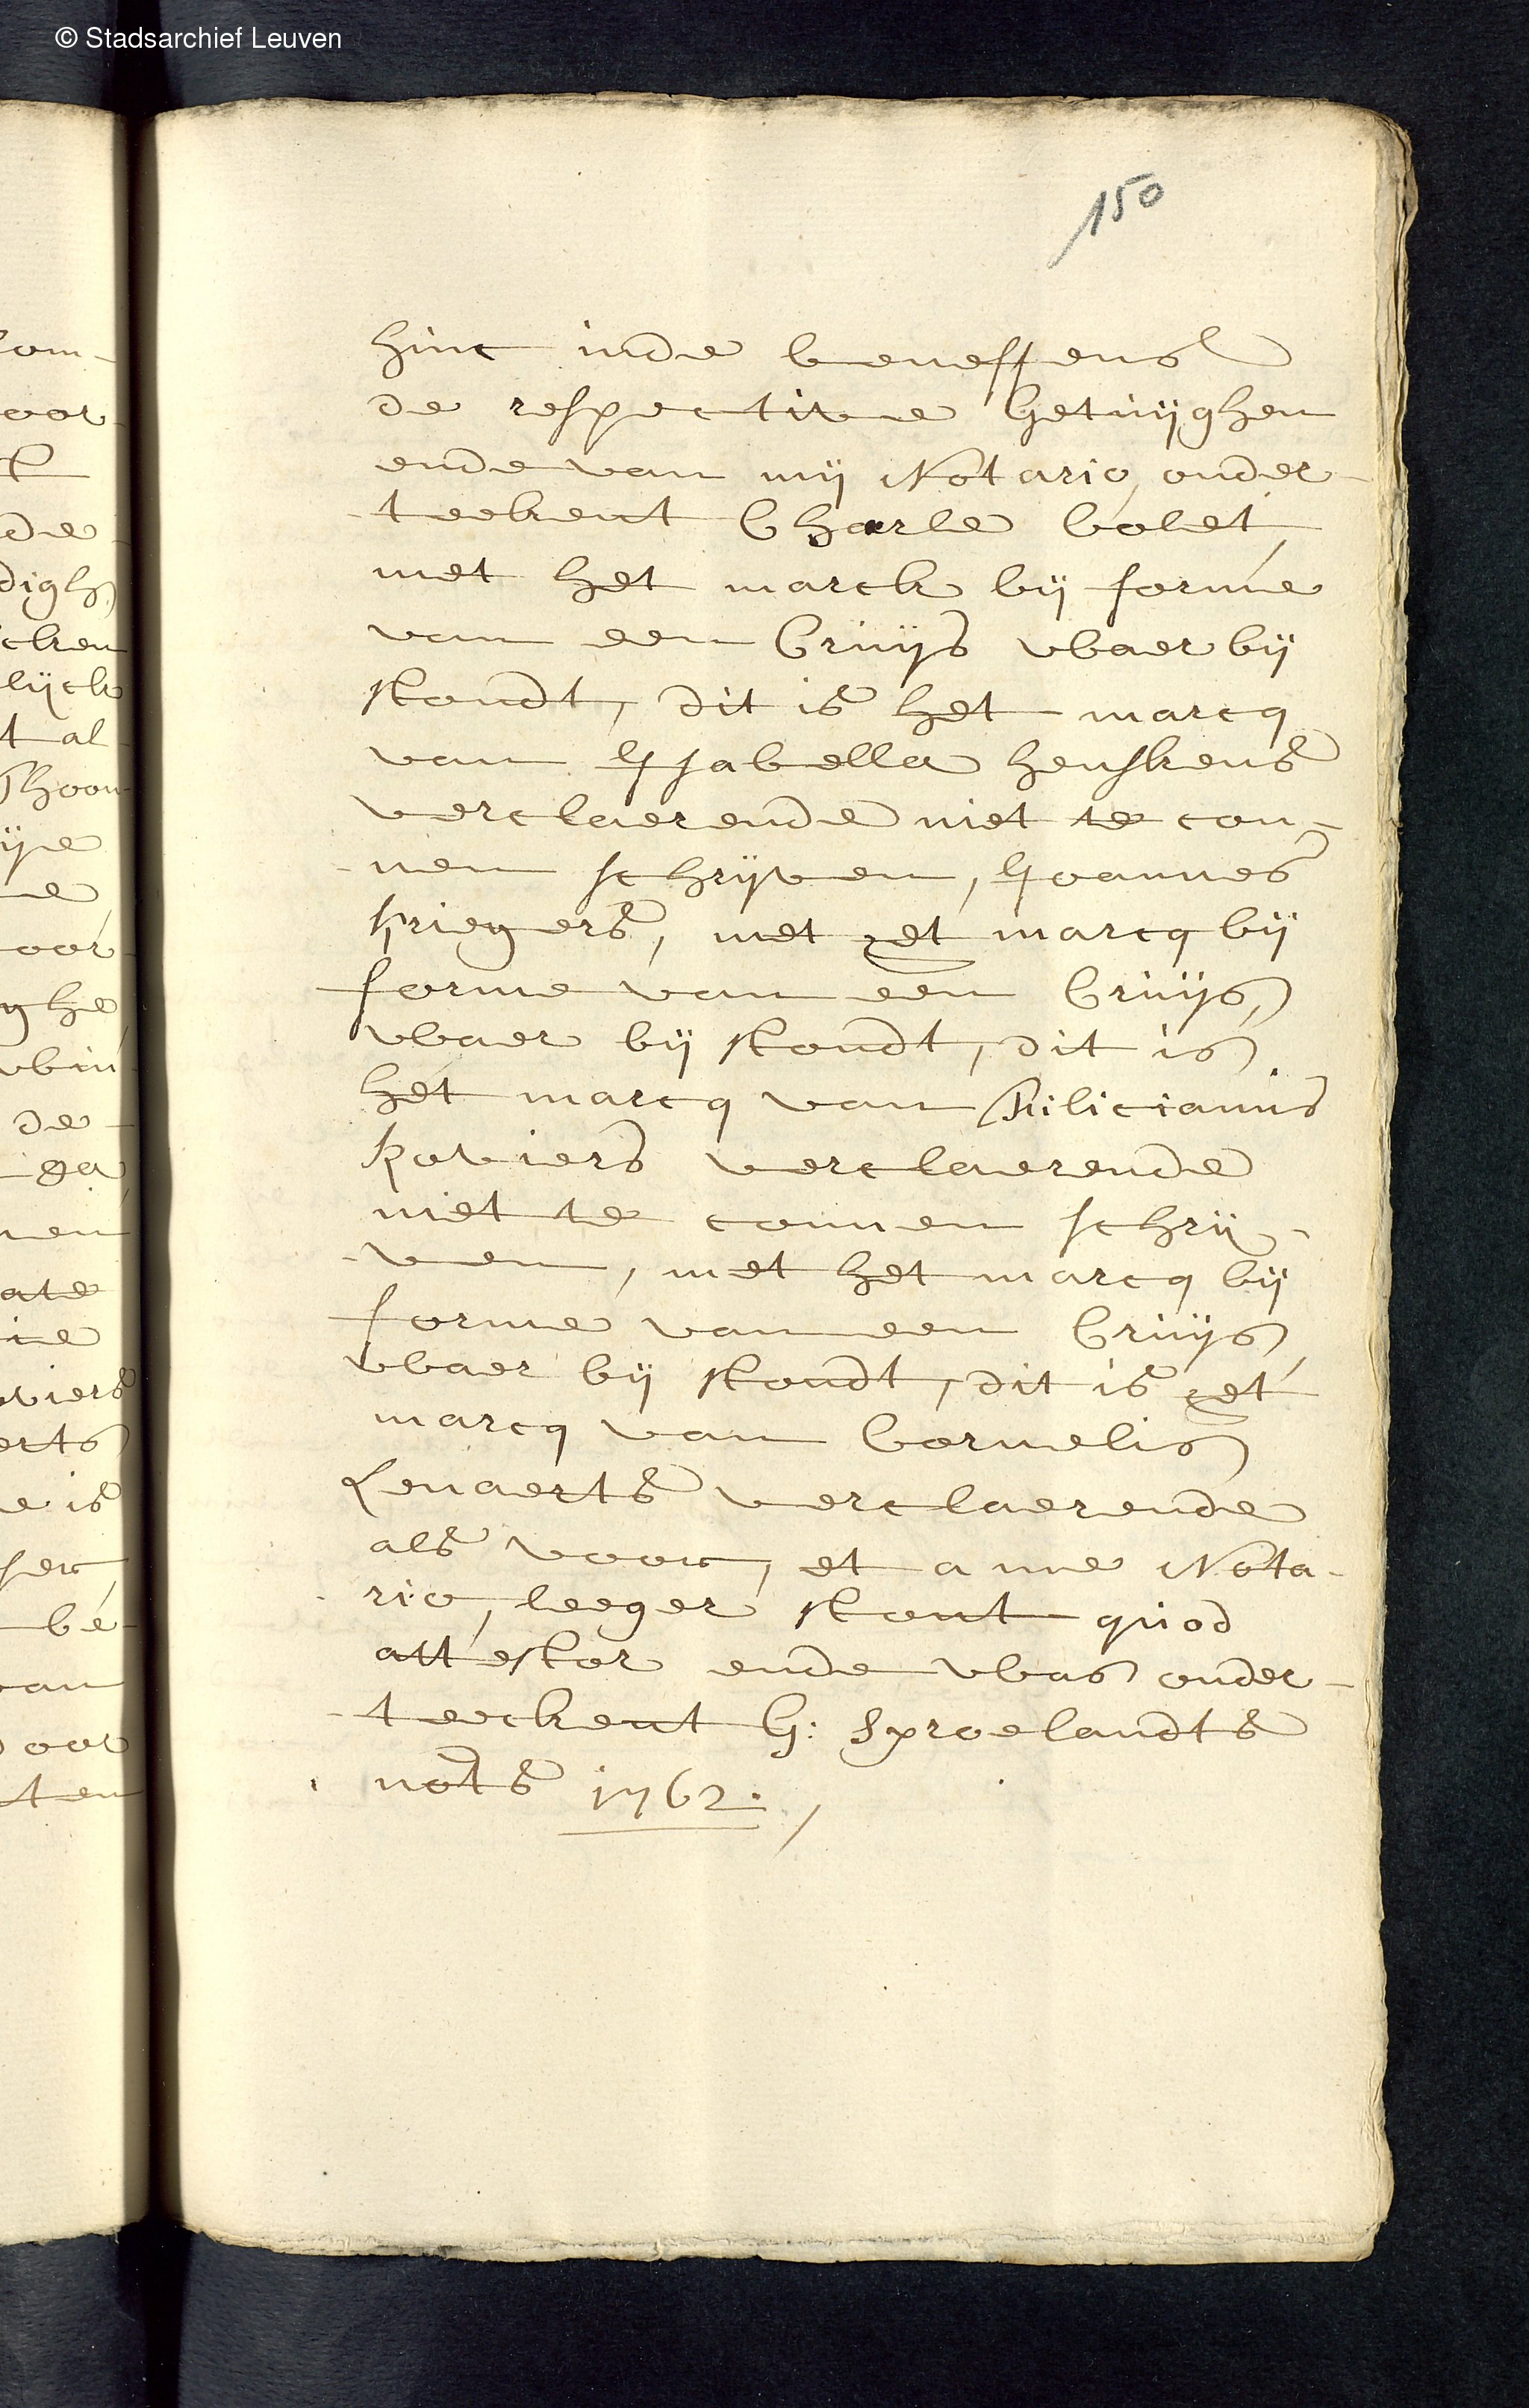 © Stadsarchief Leuven
150
hinc inde beneffens
de respective Getuijghen
ende van mij Notario onder-
-teekent Charle Colet,
met het marck bij forme
van een Cruijs wbaer bij
stondt, dit is het marcq
van Ijsabella henskens
verclaerende niet te con-
-nen schrijven, Joannes
met het marcq bij
forme van een Cruijs,
wbaer bij stondt, dit is
het marcq van Filicianus
Roviers verclaerende
niet te connen schrij-
-ven, met het marcq bij
forme van een Cruijs,
wbaer bij stondt, dit is het
marcq van Cornelis
Lenaerts verclaerende
als voor, et a me Nota-
rio, leeger stont quod
attestor ende wbas onder-
-teekent G: Sproelandts
nots 1762.